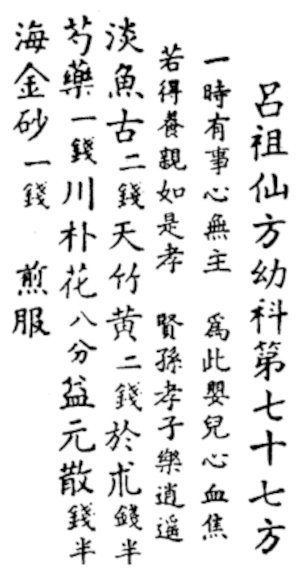 呂祖仙方幼科第七十七方
一時有事心無主 為此嬰兒心血焦
若得養親如是孝 賢孫孝子樂逍遥
淡魚古二錢天竹黄二錢於朮錢半
芍藥一錢川朴花八分益元散錢半
海金砂一錢 煎服